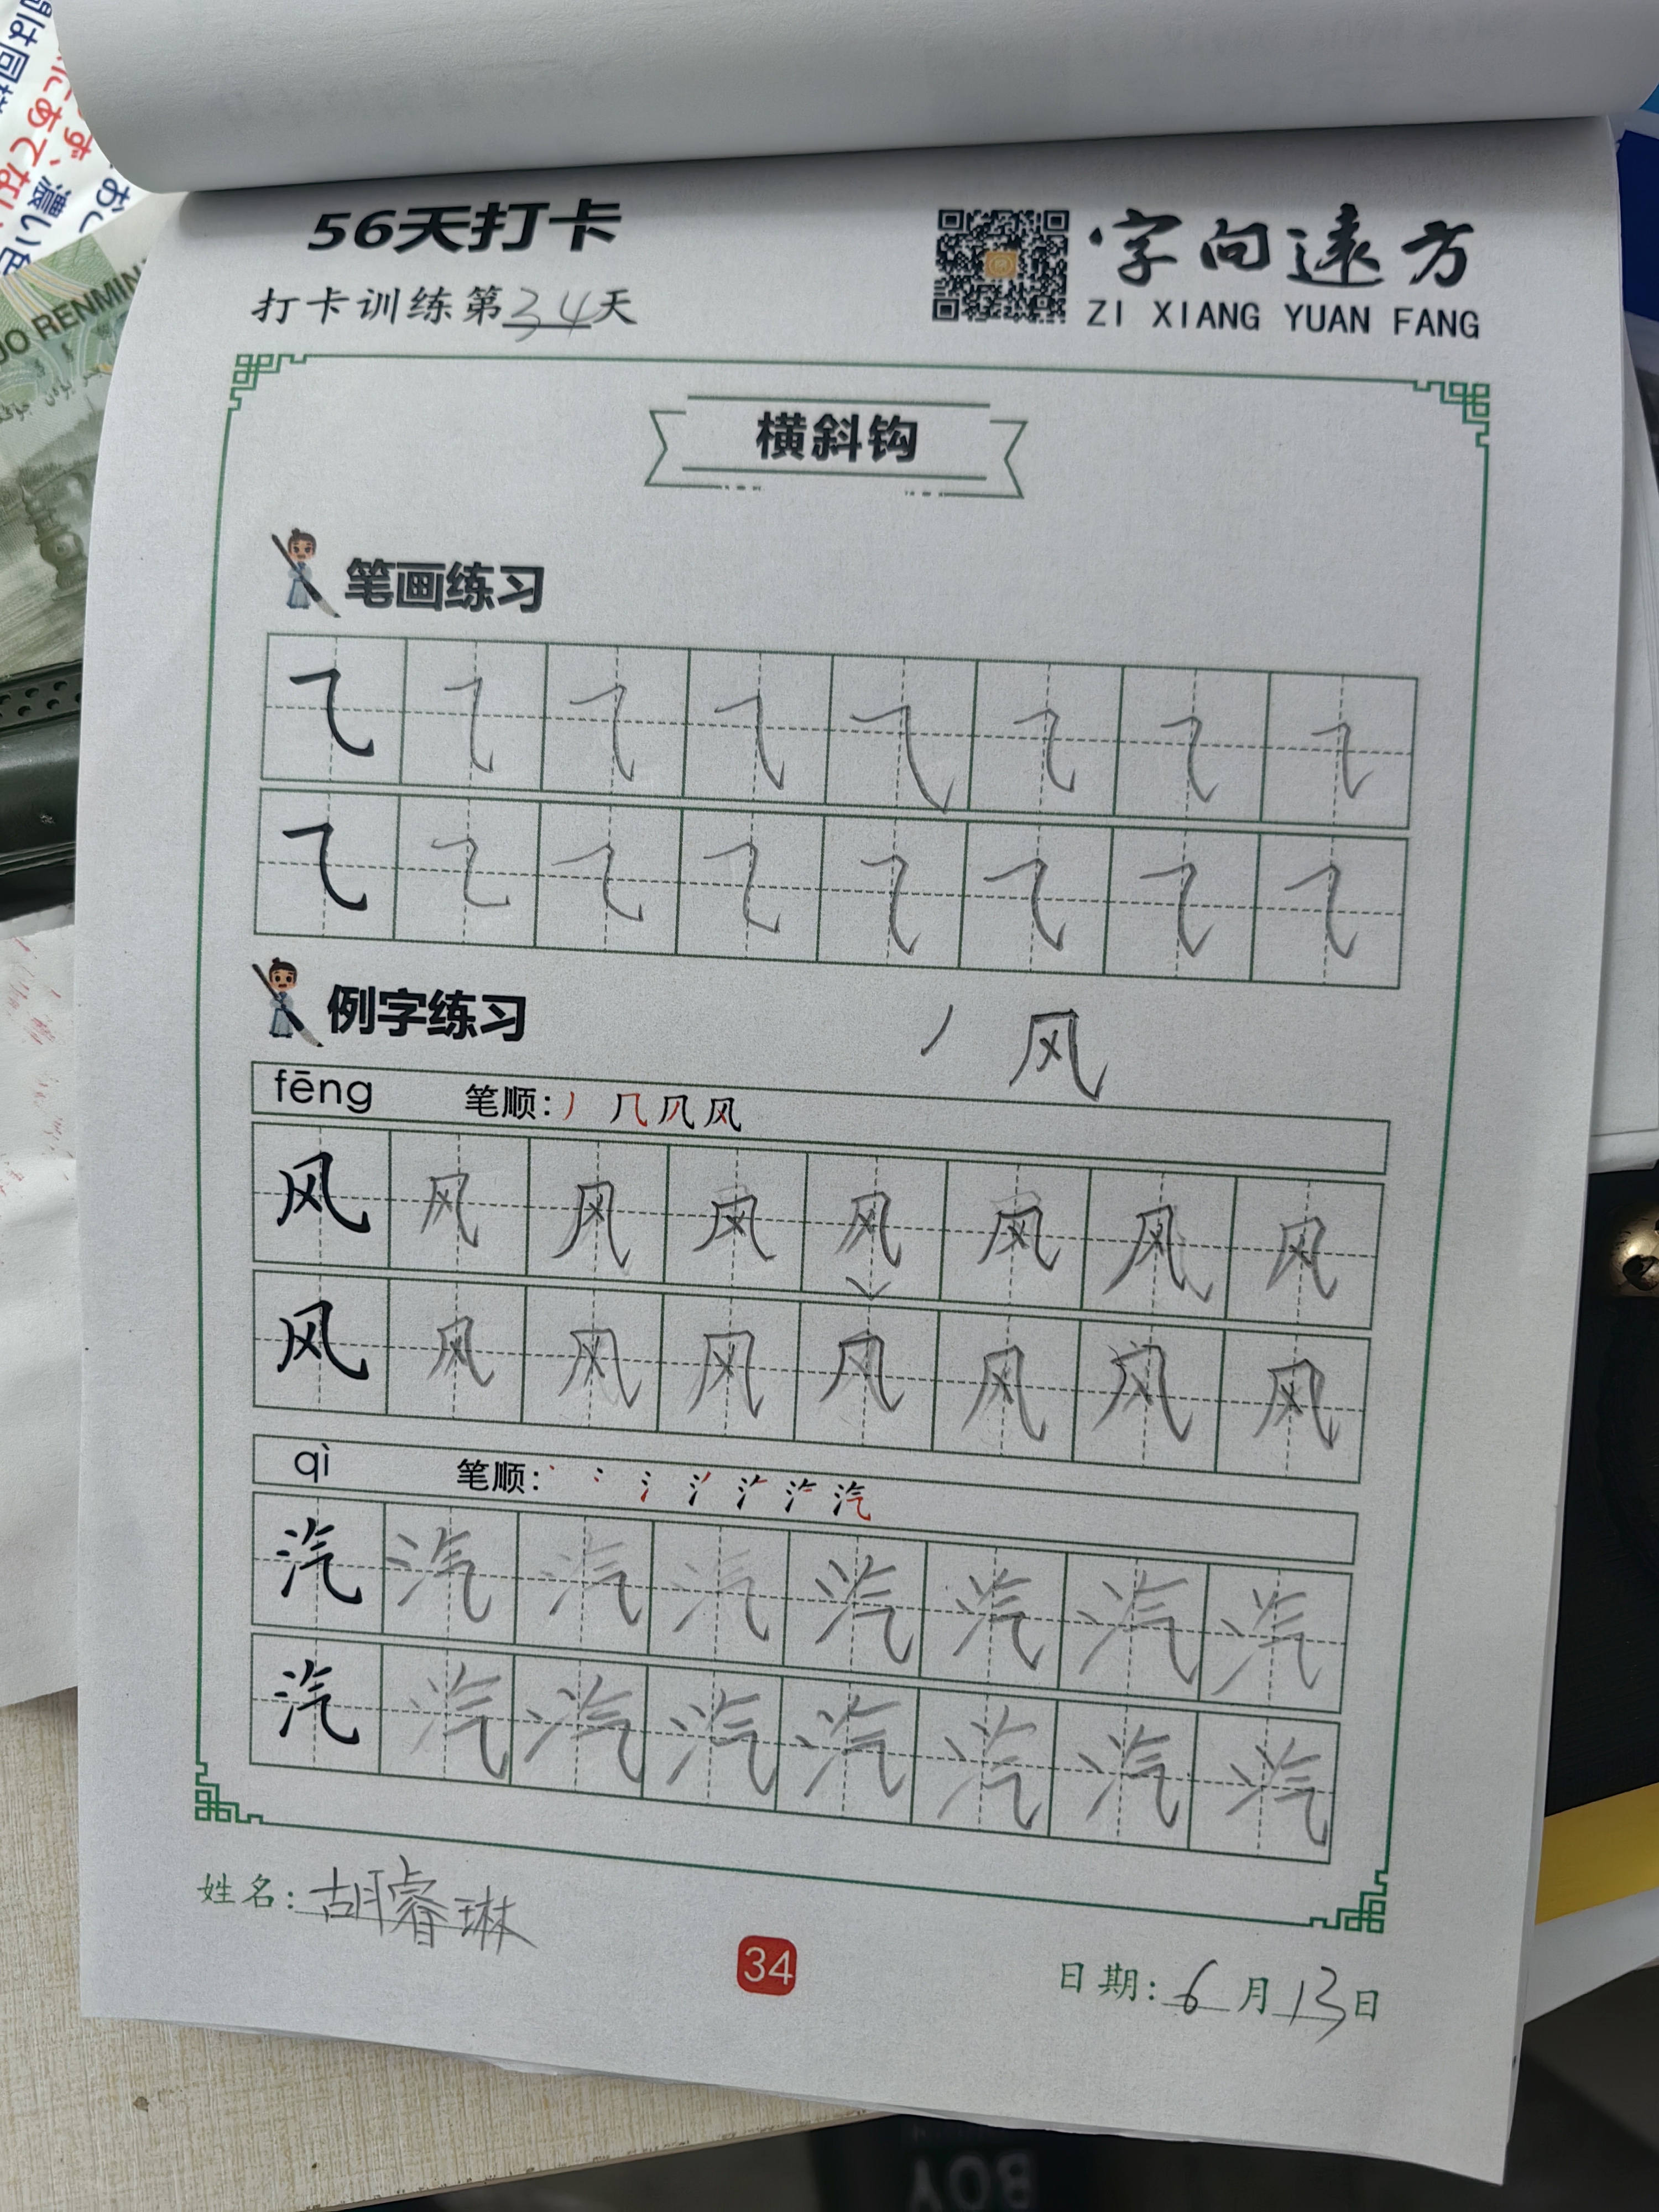 56天打卡
字向远方
ZI XIANG YUAN FANG
打卡训练第34天
横斜钩
笔画练习
例字练习
风
fēng 笔顺: 丿 几 风
风 风 风 风 风 风 风 风
风 风 风 风 风 风 风 风
qì 笔顺: 汽
汽 汽 汽 汽 汽 汽 汽 汽
汽 汽 汽 汽 汽 汽 汽 汽
姓名: 胡睿琳
34
日期: 6月13日
JO RENMIN
BOY